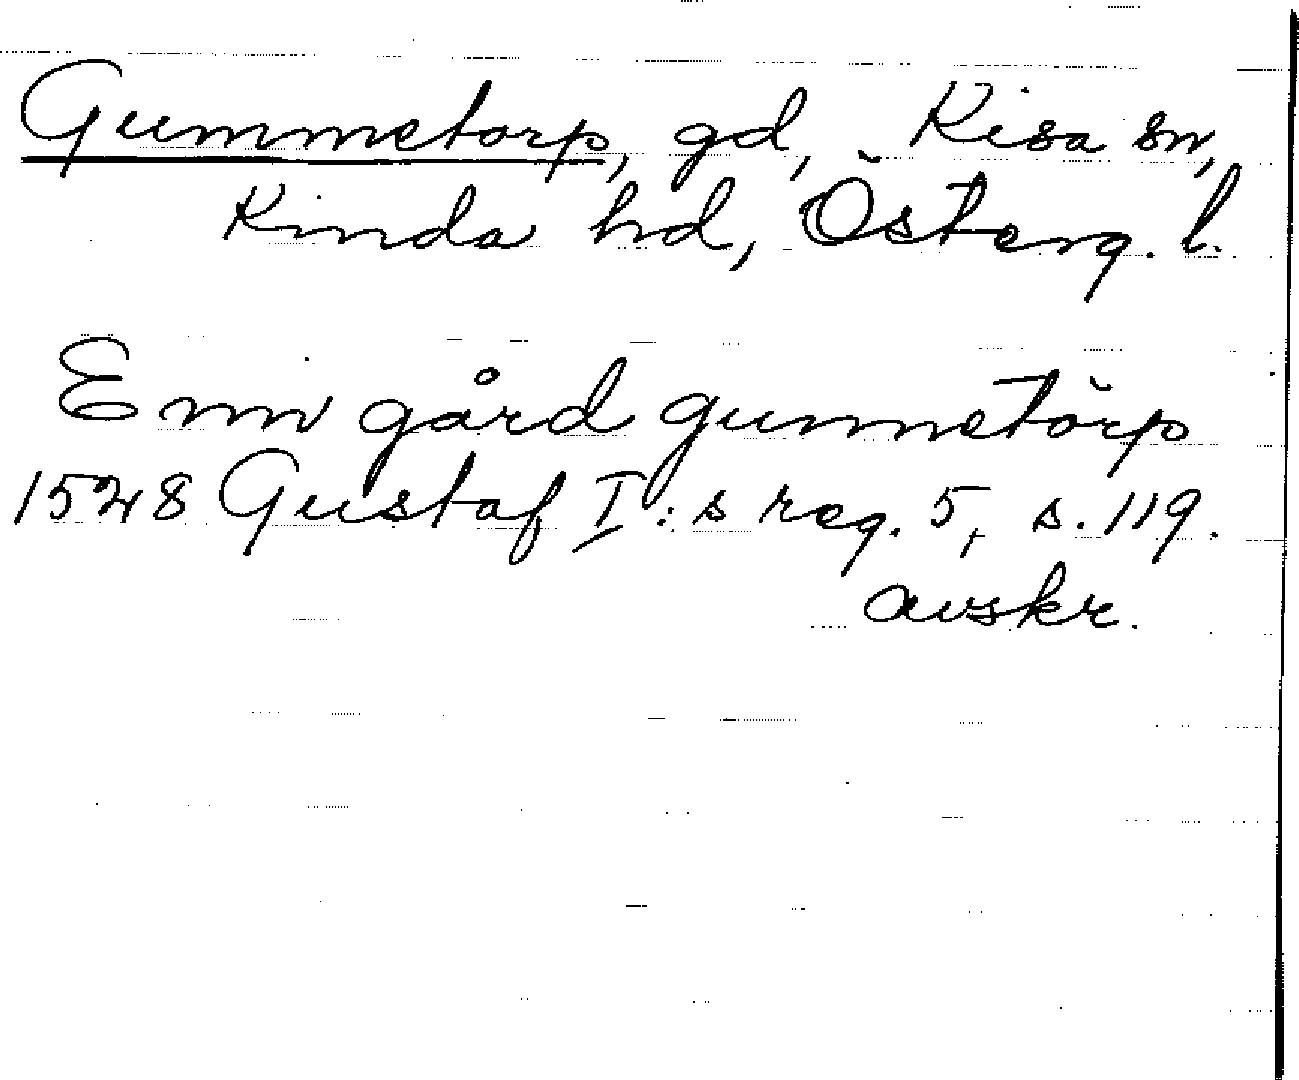 Gummetorp, gd, Kisa sn,
Kinda hd, Österg. l.
Enn gård gunnetörp
1528 Gustaf I:s reg. 5, s. 119.
avskr.